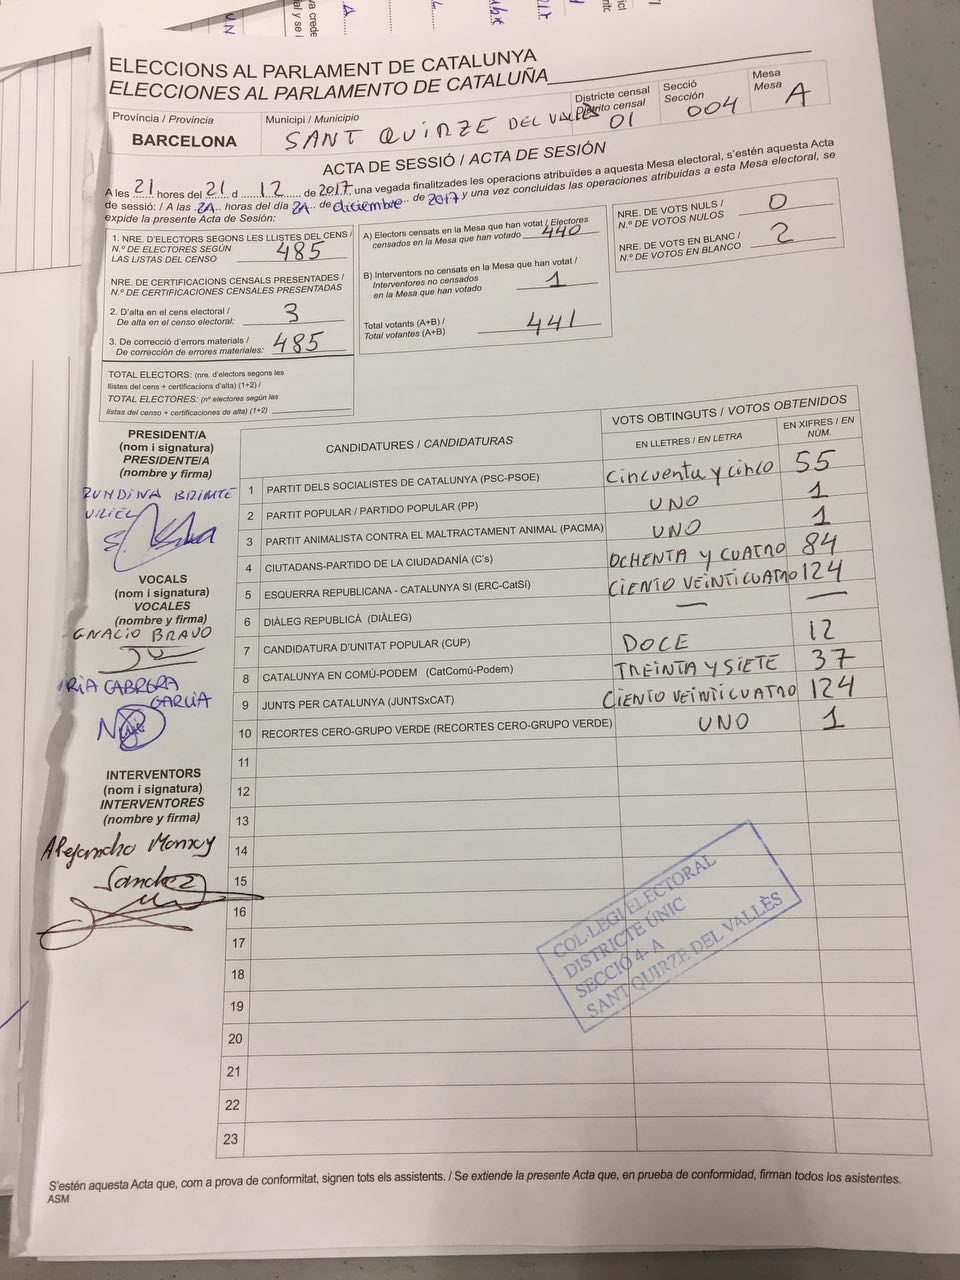 ELECCIONS AL PARLAMENT DE CATALUNYA
ELECCIONES AL PARLAMENTO DE CATALUÑA
Província / Provincia
BARCELONA
Municipi / Municipio
SANT QUIRZE DEL VALLÈS
Districte censal
Distrito censal
01
Secció
Sección
004
Mesa
Mesa
A
ACTA DE SESSIÓ / ACTA DE SESIÓN
A les 21 hores del 21 d 12 de 2017 una vegada finalitzades les operacions atribuïdes a aquesta Mesa electoral, s'estén aquesta Acta
de sessió: / A las 21 horas del día 21 de diciembre de 2017 y una vez concluidas las operaciones atribuidas a esta Mesa electoral, se
expide la presente Acta de Sesión:
1. NRE. D'ELECTORS SEGONS LES LLISTES DEL CENS /
N.º DE ELECTORES SEGÚN
LAS LISTAS DEL CENSO
485
NRE. DE CERTIFICACIONS CENSALS PRESENTADES /
N.º DE CERTIFICACIONES CENSALES PRESENTADAS
2. D'alta en el cens electoral /
De alta en el censo electoral: 3
3. De correcció d'errors materials /
De corrección de errores materiales: 485
TOTAL ELECTORS: (nre. d'electors segons les
llistes del cens + certificacions d'alta) (1+2) /
TOTAL ELECTORES: (nº electores según las
listas del censo + certificaciones de alta) (1+2)
A) Electors censats en la Mesa que han votat / Electores
censados en la Mesa que han votado 440
B) Interventors no censats en la Mesa que han votat /
Interventores no censados
en la Mesa que han votado 1
Total votants (A+B) /
Total votantes (A+B) 441
NRE. DE VOTS NULS /
N.º DE VOTOS NULOS 0
NRE. DE VOTS EN BLANC /
N.º DE VOTOS EN BLANCO 2
PRESIDENT/A
(nom i signatura)
PRESIDENTE/A
(nombre y firma)
URIEL
VOCALS
(nom i signatura)
VOCALES
(nombre y firma)
GNACIO BRAVO
RIA CABRERA
GARCIA
INTERVENTORS
(nom i signatura)
INTERVENTORES
(nombre y firma)
Alejandro
Sanchez
CANDIDATURES / CANDIDATURAS
VOTS OBTINGUTS / VOTOS OBTENIDOS
EN LLETRES / EN LETRA
EN XIFRES / EN NÚM.
1 PARTIT DELS SOCIALISTES DE CATALUNYA (PSC-PSOE) Cincuenta y cinco 55
2 PARTIT POPULAR / PARTIDO POPULAR (PP) UNO 1
3 PARTIT ANIMALISTA CONTRA EL MALTRACTAMENT ANIMAL (PACMA) UNO 1
4 CIUTADANS-PARTIDO DE LA CIUDADANÍA (C's) OCHENTA Y CUATRO 84
5 ESQUERRA REPUBLICANA - CATALUNYA SI (ERC-CatSí) CIENTO VEINTICUATRO 124
6 DIÀLEG REPUBLICÀ (DIÀLEG) — —
7 CANDIDATURA D'UNITAT POPULAR (CUP) DOCE 12
8 CATALUNYA EN COMÚ-PODEM (CatComú-Podem) TREINTA Y SIETE 37
9 JUNTS PER CATALUNYA (JUNTSxCAT) CIENTO VEINTICUATRO 124
10 RECORTES CERO-GRUPO VERDE (RECORTES CERO-GRUPO VERDE) UNO 1
11
12
13
14
15
16
17
18
19
20
21
22
23
COL·LEGI ELECTORAL
DISTRICTE ÚNIC
SECCIÓ 4- A
SANT QUIRZE DEL VALLÈS
S'estén aquesta Acta que, com a prova de conformitat, signen tots els assistents. / Se extiende la presente Acta que, en prueba de conformidad, firman todos los asistentes.
ASM